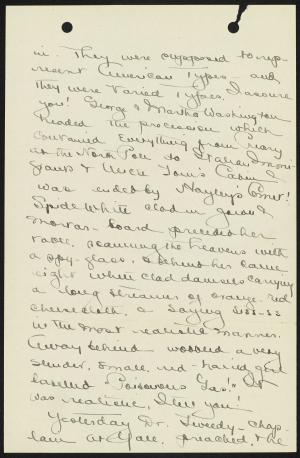 in. They were supposed to rep-
resent American Types - and
they were Varied Types, I assure
you! George & Martha Washington
headed the procession which
contained everything from Mary
at the North Pole to Italian
& Uncle Tom's Cabin &
was ended by Comet!
Spide White clad in gown &
mortar-board preceded her
table, scanning the heavens with
a spy-glass, & behind her came
eight white clad damsels carrying
a long streamer of orange-red
cheesecloth, & saying siss-ss
in the most realistic manner.
Away behind wobbled a very
slender, small, red-haired girl
labelled "Poisonous Gas." It
was realistic, I tell you!
Yesterday Dr. Tweedy - chap-
lain at Yale, preached, & he